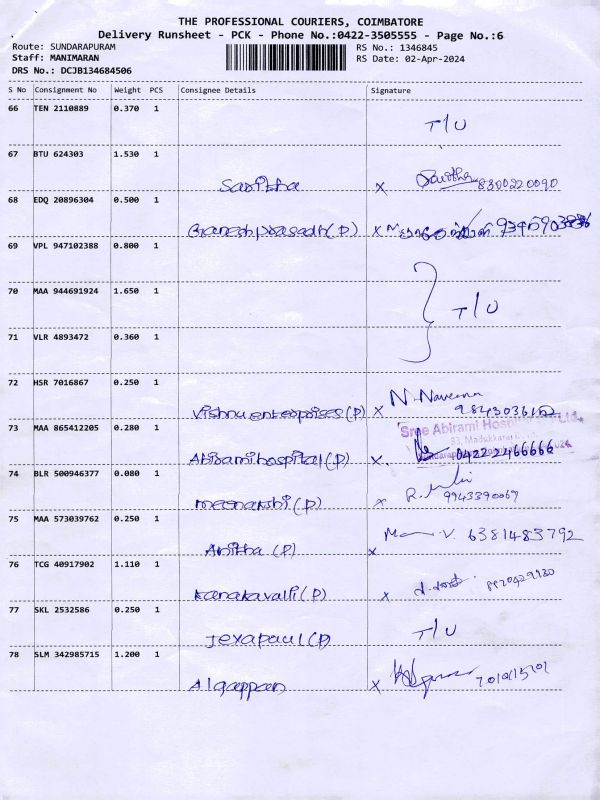 THE PROFESSIONAL COURIERS, COIMBATORE
Delivery Runsheet - PCK - Phone No.:0422-3505555 - Page No.:6
Route: SUNDARAPURAM
Staff: MANIMARAN
DRS No.: DCJB134684506
RS No.: 1346845
RS Date: 02-Apr-2024
S No Consignment No Weight PCS Consignee Details Signature
66 TEN 2110889 0.370 1
T/U
67 BTU 624303 1.530 1
Saritha x 8300220090
68 EDQ 20896304 0.500 1
Ganesh prasadh(P) x
69 VPL 947102388 0.800 1
70 MAA 944691924 1.650 1
T/U
71 VLR 4893472 0.360 1
72 HSR 7016867 0.250 1
N. Naveena
Vishnu enterprises(P) x 9843036162
73 MAA 865412205 0.280 1
Sree Abirami Hospital Pvt. Ltd.,
33, Madukkarai
Abirami hospital(P) x. 0422 2466666
74 BLR 500946377 0.080 1
meenakshi(P) x R. 9943390069
75 MAA 573039762 0.250 1
Anitha (P) x V. 6381483792
76 TCG 40917902 1.110 1
Kanakavalli(P) x
77 SKL 2532586 0.250 1
Jeyapaul(P) T/U
78 SLM 342985715 1.200 1
Algappan x